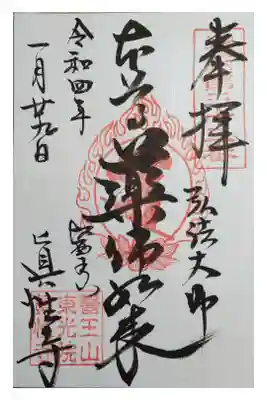 奉拝
弘法大師
本尊薬師如来
令和四年
一月廿九日
眞性寺
醫王山
東光院